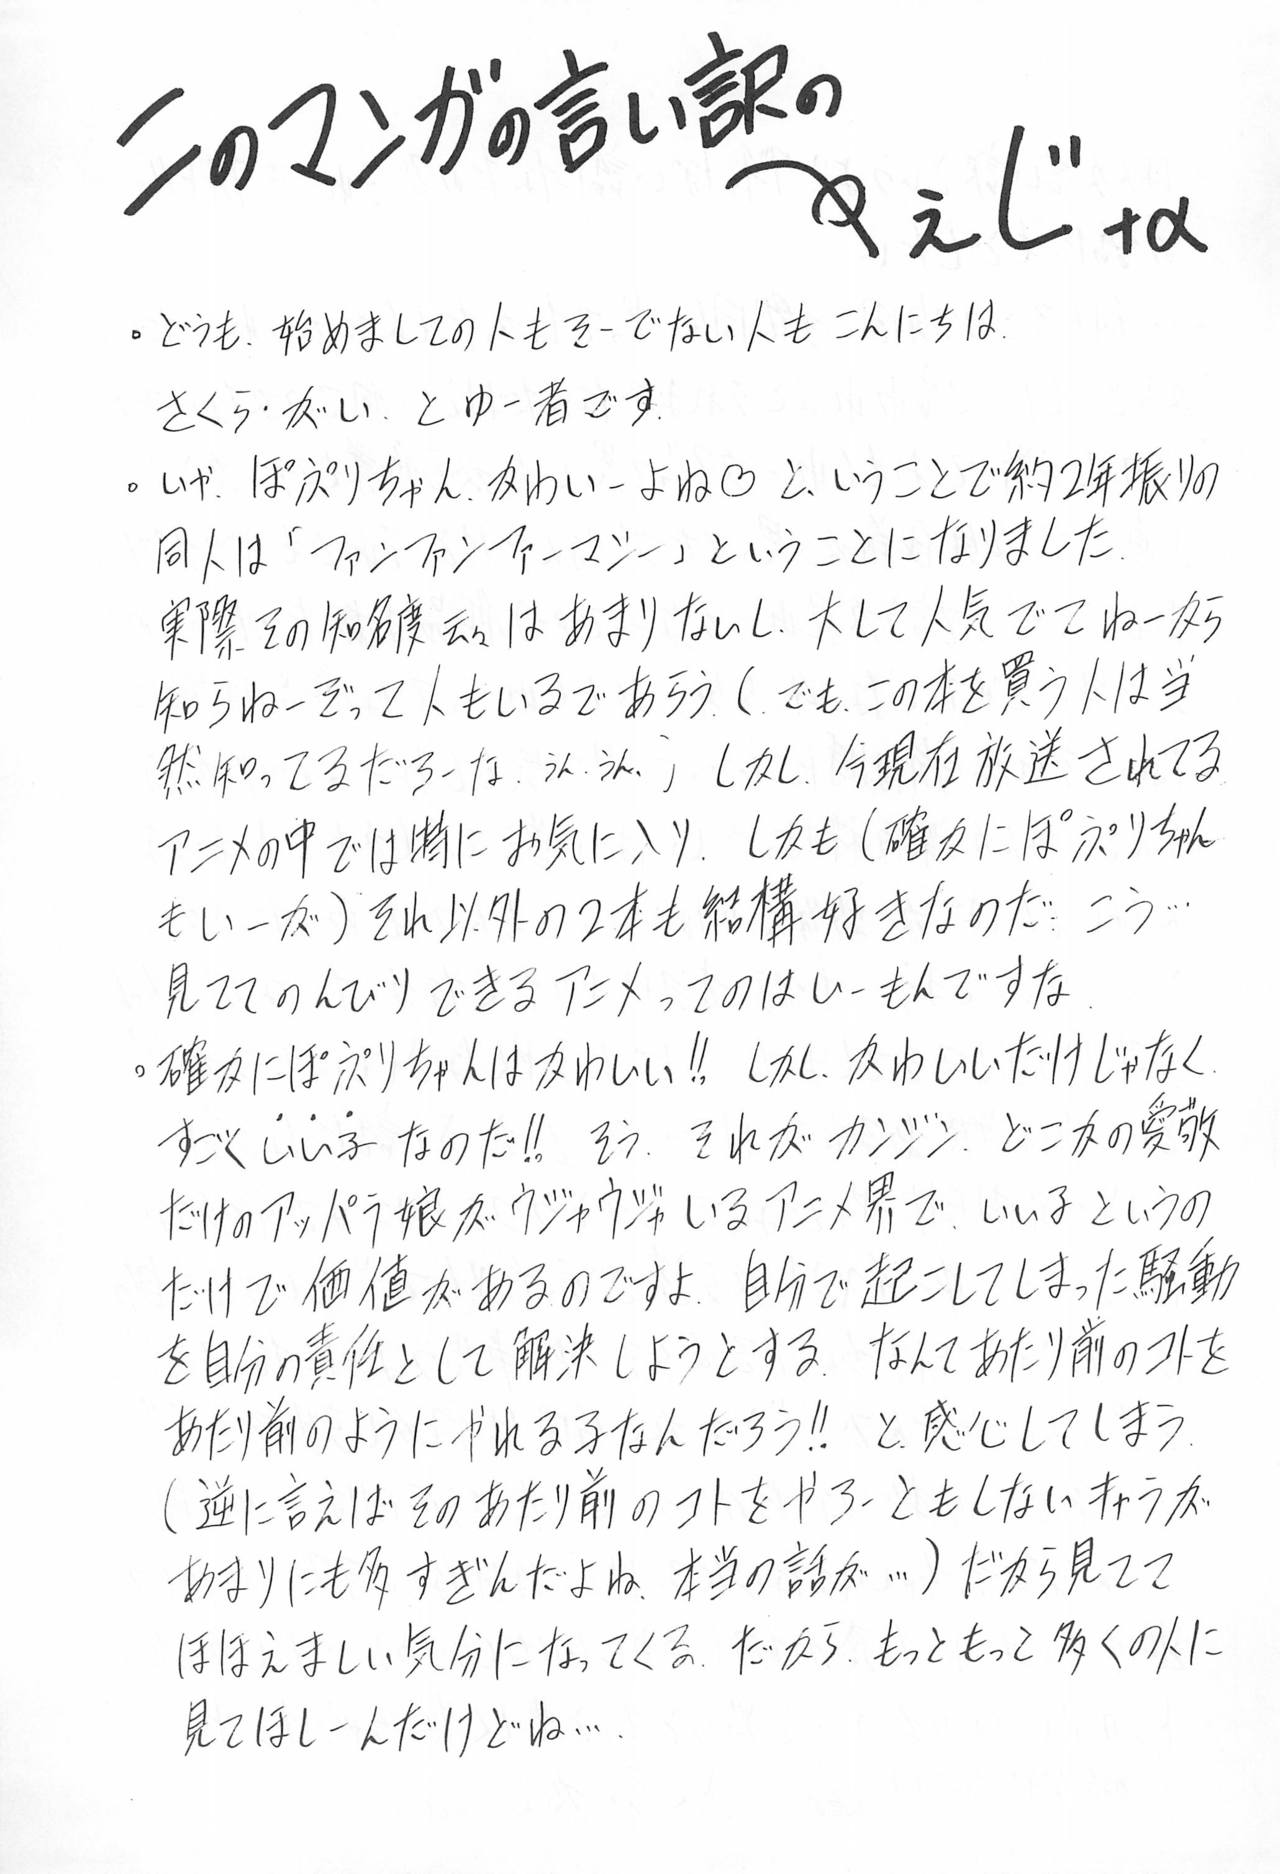 このマンガの言い訳の
ぺえじ+α
。どうも、始めましての人もそーでない人もこんにちは、
さくら・がい、とゆー者です。
。いや、ぽぷりちゃん、かわいーよね♡と、いうことで約2年振りの
同人は「ファンファンファーマシー」ということになりました。
実際その知名度云々はあまりないし、大して人気でてねーから
知らねーぞって人もいるであろう、(でも、この本を買う人は当
然知ってるだろーな、うん、うん、)しかし、今現在放送されてる
アニメの中では特にお気に入り、しかも(確かにぽぷりちゃん
もいーが)それ以外の2本も結構好きなのだ、こう…
見ててのんびりできるアニメってのはいーもんですな、
。確かにぽぷりちゃんはかわいい!!しかし、かわいいだけじゃなく、
すごくいい子なのだ!!そう、それがカンジン、どこかの愛敬
だけのアッパラ娘がウジャウジャいるアニメ界で、いい子というの
だけで価値があるのですよ、自分で起こしてしまった騒動
を自分の責任として解決しようとする、なんてあたり前のコトを
あたり前のようにやれる子なんだろう!!と、感心してしまう、
(逆に言えばそのあたり前のコトをやろーともしないキャラが
あまりにも多すぎんだよね、本当の話が…)だから見てて
ほほえましい気分になってくる、だから、もっともっと多くの人に
見てほしーんだけどね…、